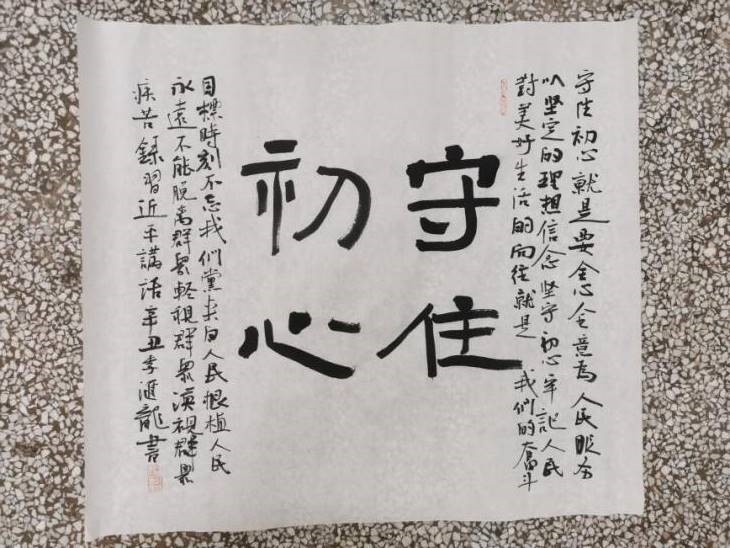 守住
初心
守住初心就是要全心全意為人民服务
以坚定的理想信念坚守初心牢記人民
對美好生活的向往就是 我们的奮斗
目標時刻不忘我们黨来自人民根植人民
永遠不能脱离群眾輕視群眾漠視群眾
疾苦錄習近平講話辛丑李滙龍書